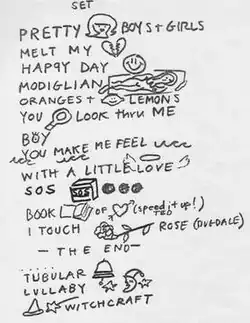 SET
PRETTY BOYS + GIRLS
MELT MY
HAPPY DAY
MODIGLIAN
ORANGES + LEMONS
YOU LOOK thru ME
BOY
YOU MAKE ME FEEL
ice ice ice
WITH A LITTLE LOVE
SOS SOS
BOOK OF (speed it up!)
I TOUCH ROSE
— THE END —
TUBULAR
LULLABY
WITCHCRAFT